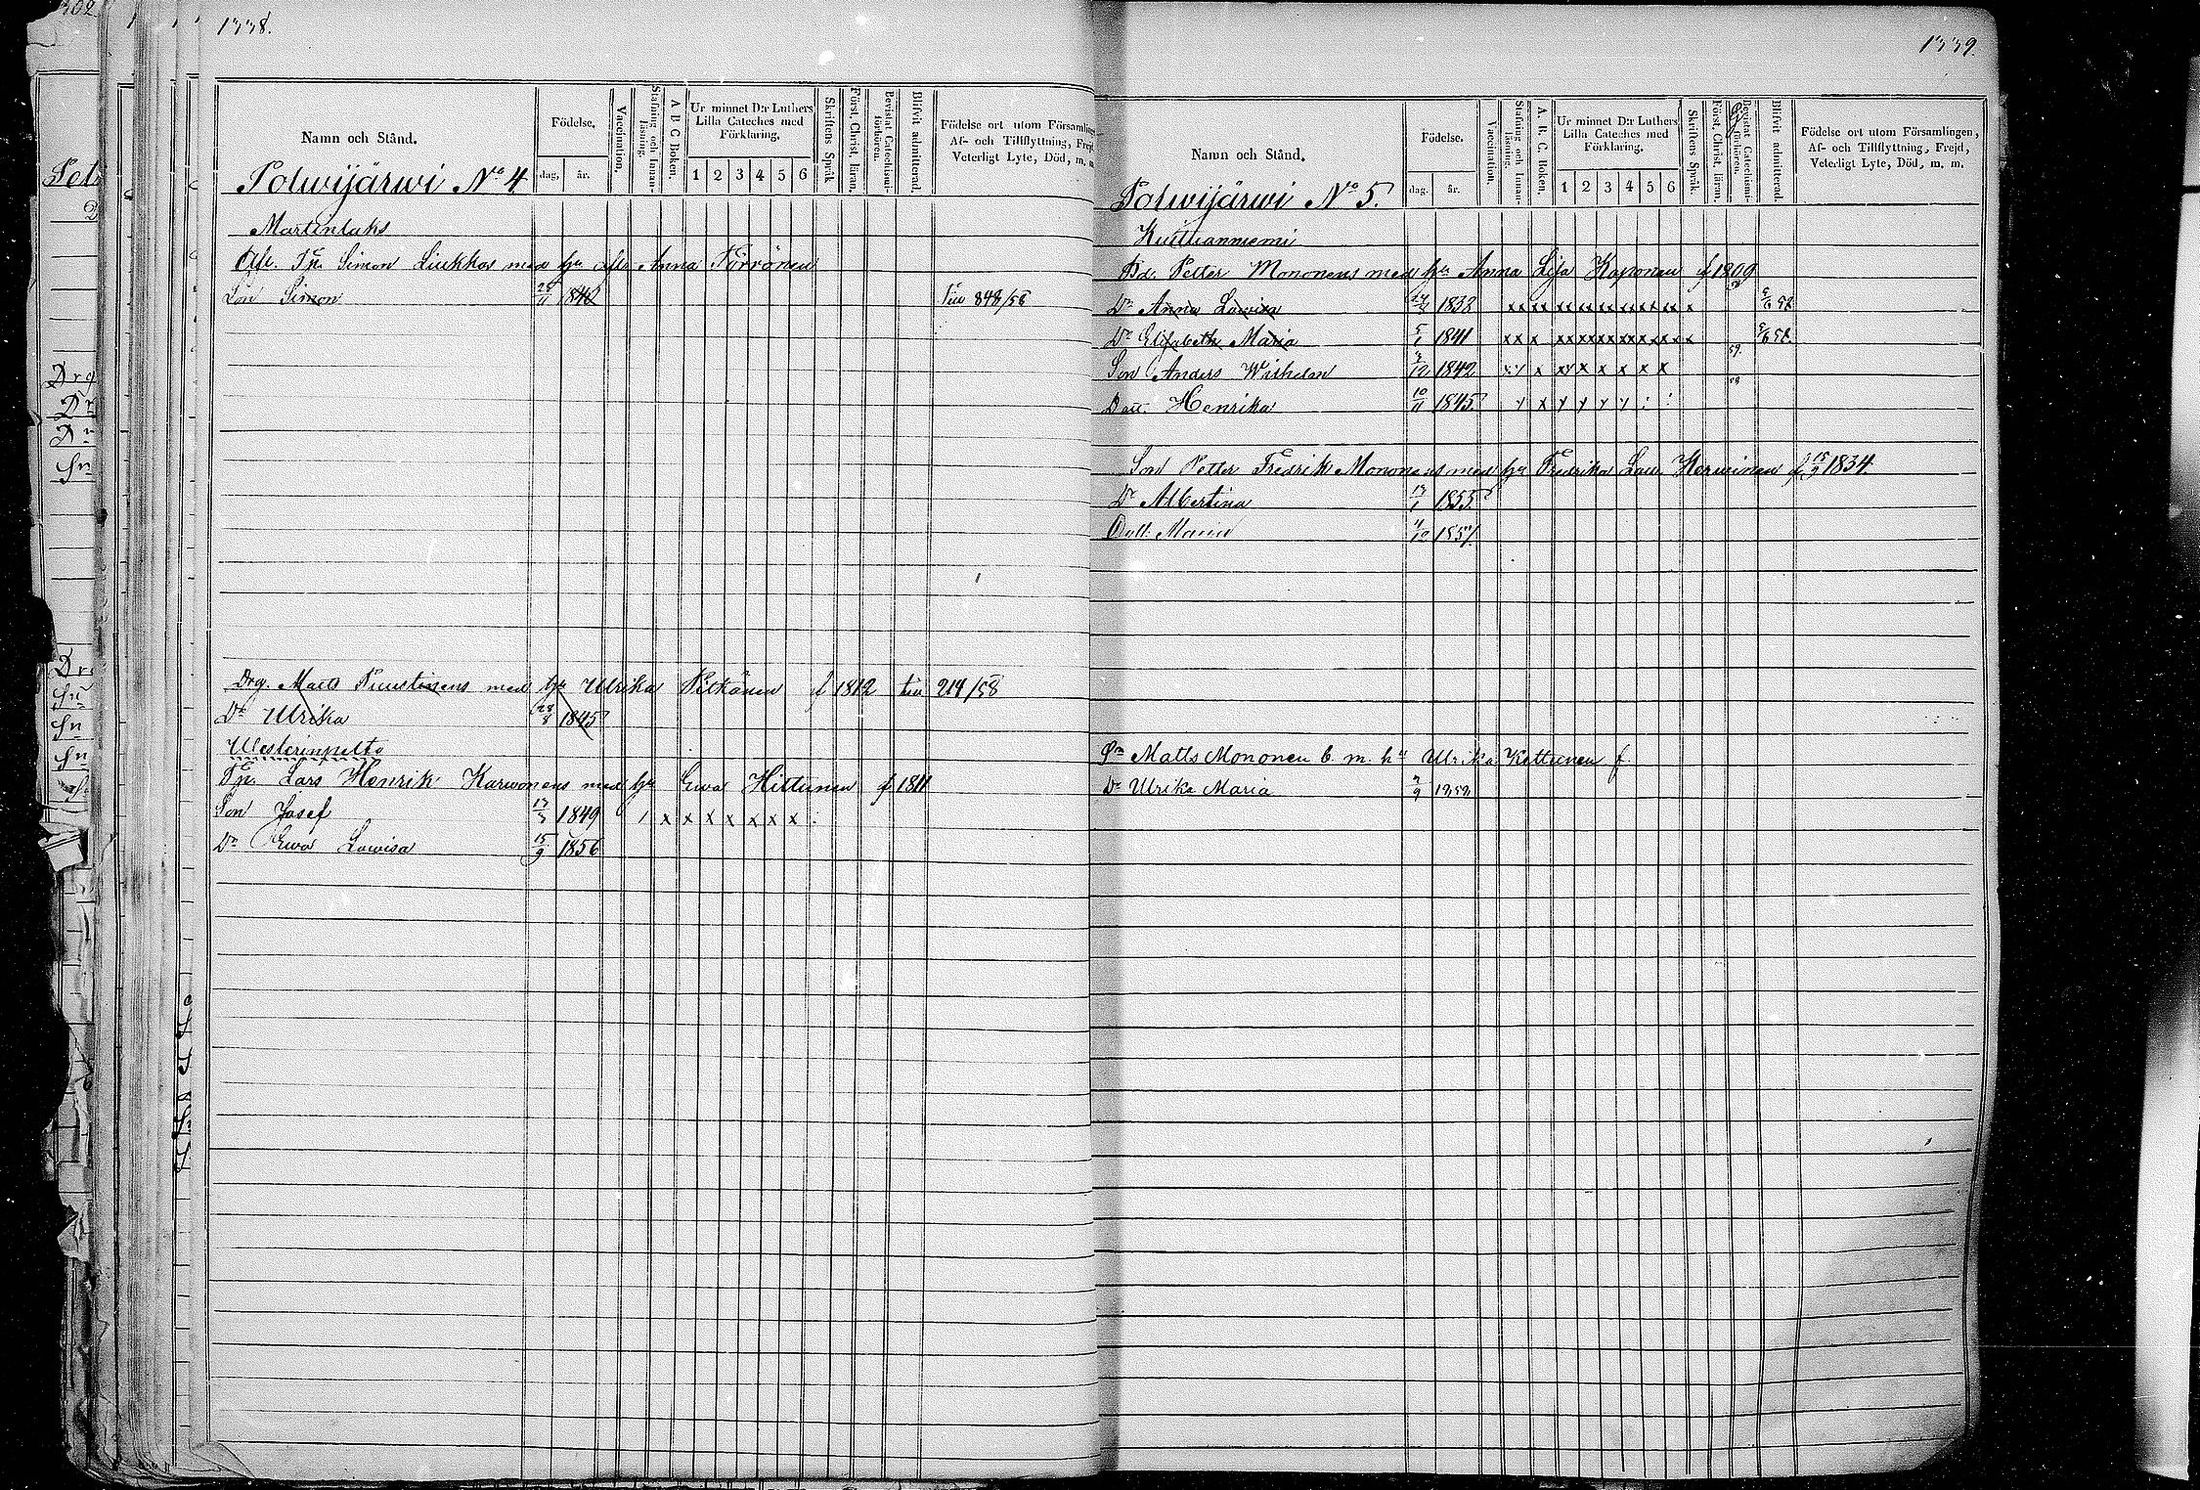 1338.
Namn och Stånd.
Födelse.
dag, år.
Vaccination.
Stafning och Innanläsning.
A B C Boken.
Ur minnet D:r Luthers Lilla Cateches med Förklaring.
1 2 3 4 5 6
Skriftens Språk
Först. Christ. läran.
Bevistat Catechismiförhören.
Blifvit admitterad.
Födelse ort utom Församlingen
Af- och Tillflyttning, Frejd
Veterligt Lyte, Död, m. m.
Polwijärwi No 4
Martinlaks
Afl. Tp. Simon Liukkos med hu afl. Anna Törrönen
Son Simon 1842 848/58
Drg. Matts Puustinens med hu Ulrika Pitkänen f 1812 211/58
Dr Ulrika 28/8 1845
Westerinpelto
Tp. Lars Henrik Karwonens med hu Ewa Hittunen f 1811
Son Josef 1849 / x x x x x x x
Dr Ewa Lowisa 15/9 1856
1339
Namn och Stånd.
Födelse.
dag. år.
Vaccination.
Stafning och Innanläsning.
A. B. C. Boken.
Ur minnet D:r Luthers Lilla Cateches med Förklaring.
1 2 3 4 5 6
Skriftens Språk
Först. Christ. läran.
Bevistat Catechismiförhören.
Blifvit admitterad.
Födelse ort utom Församlingen,
Af- och Tillflyttning, Frejd,
Veterligt Lyte, Död, m. m.
Polwijärwi No 5.
Bd. Petter Mononens med hu Anna Lisa Kaponen f 1809
Dr Anna Lowisa 1838
Dr Elisabeth Maria 5/1 1841
Son Anders Wilhelm 1842
Dott. Henrika 10/11 1845
Son Petter Fredrik Mononens med hu Fredrika Lau. Kerwinen f 15/9 1834
Dr Albertina 1853
Dott. Maria 1857
Sn Matts Mononen b. m. hu Ulrika Kettunen f.
Dr Ulrika Maria 1858